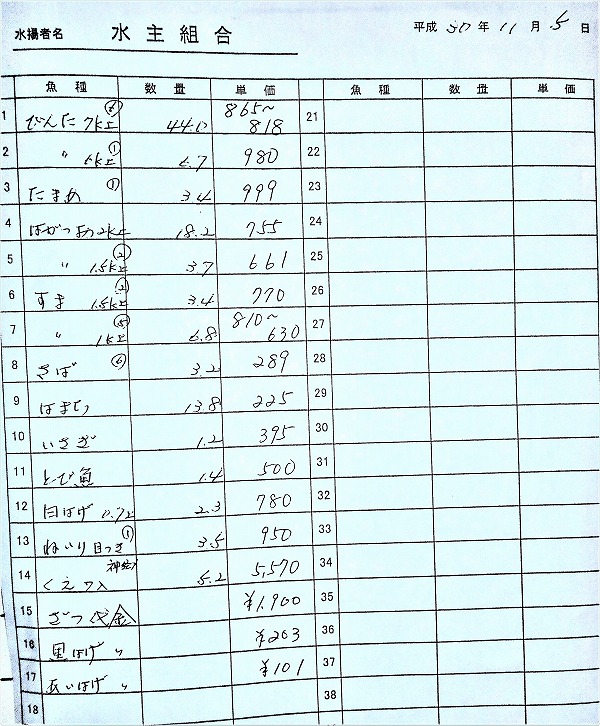 水揚者名 水主組合
平成 30 年 11 月 5 日
魚種 数量 単価 魚種 数量 単価
1 びんた 7k上 ⑥ 44.0 865〜818 21
2 〃 6k上 ① 6.7 980 22
3 たまめ ① 3.4 999 23
4 はがつお 2k上 18.2 755 24
5 〃 1.5k上 ② 3.7 661 25
6 すま 1.5k上 ② 3.4 770 26
7 〃 1k上 ⑤ 6.8 810〜630 27
8 さば ⑥ 3.2 289 28
9 はまち 13.8 225 29
10 いさぎ 1.2 395 30
11 とび魚 1.4 500 31
12 目はげ 0.7上 2.3 780 32
13 ねいり目つき ① 3.5 950 33
14 くえ 神経 5.2 5,570 34
15 ざつ代金 ¥1,900 35
16 黒はげ 〃 ¥203 36
17 あいはげ 〃 ¥101 37
18 38